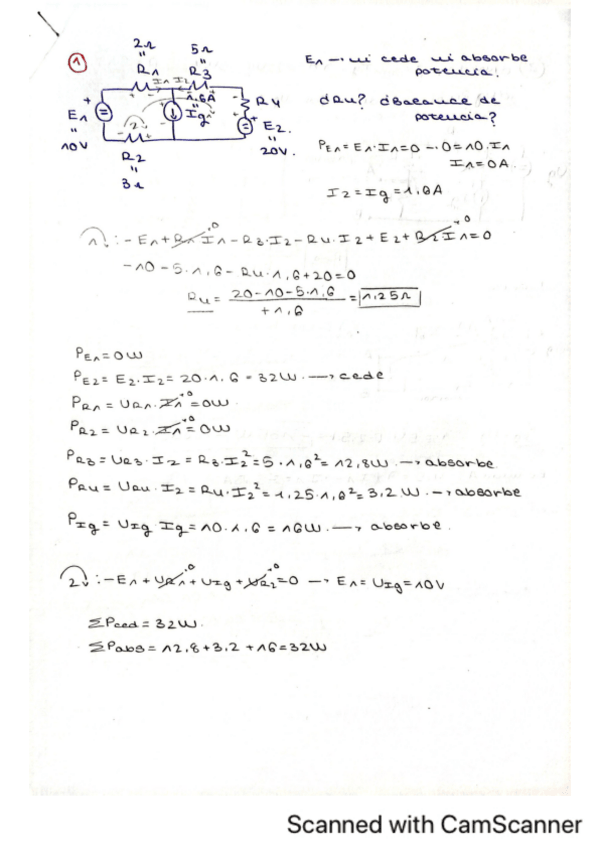 1
2Ω
"
R1
5Ω
"
R3
I1 I2
1.6A
"
Ig
R4
E1
"
10V
E2
"
20V.
R2
"
3Ω
2
E1 → ni cede ni absorbe
potencia.
¿R4? ¿Balance de
potencia?
PE1 = E1·I1 = 0 → 0 = 10·I1
I1 = 0A.
I2 = Ig = 1,6A
1: -E1 + R1·I1 - R3·I2 - R4·I2 + E2 + R2·I1 = 0
-10 - 5·1,6 - R4·1,6 + 20 = 0
R4 = (20-10-5·1,6)/(+1,6) = 1.25Ω
PE1 = 0W
PE2 = E2·I2 = 20·1.6 = 32W. → cede
PR1 = UR1·I1 = 0W.
PR2 = UR2·I1 = 0W
PR3 = UR3·I2 = R3·I2² = 5·1,6² = 12,8W. → absorbe.
PR4 = UR4·I2 = R4·I2² = 1,25·1,6² = 3.2W. → absorbe
PIg = UIg·Ig = 10·1.6 = 16W. → absorbe.
2: -E1 + UR1 + UIg + UR2 = 0 → E1 = UIg = 10V
ΣPced = 32W.
ΣPabs = 12,8 + 3,2 + 16 = 32W
Scanned with CamScanner